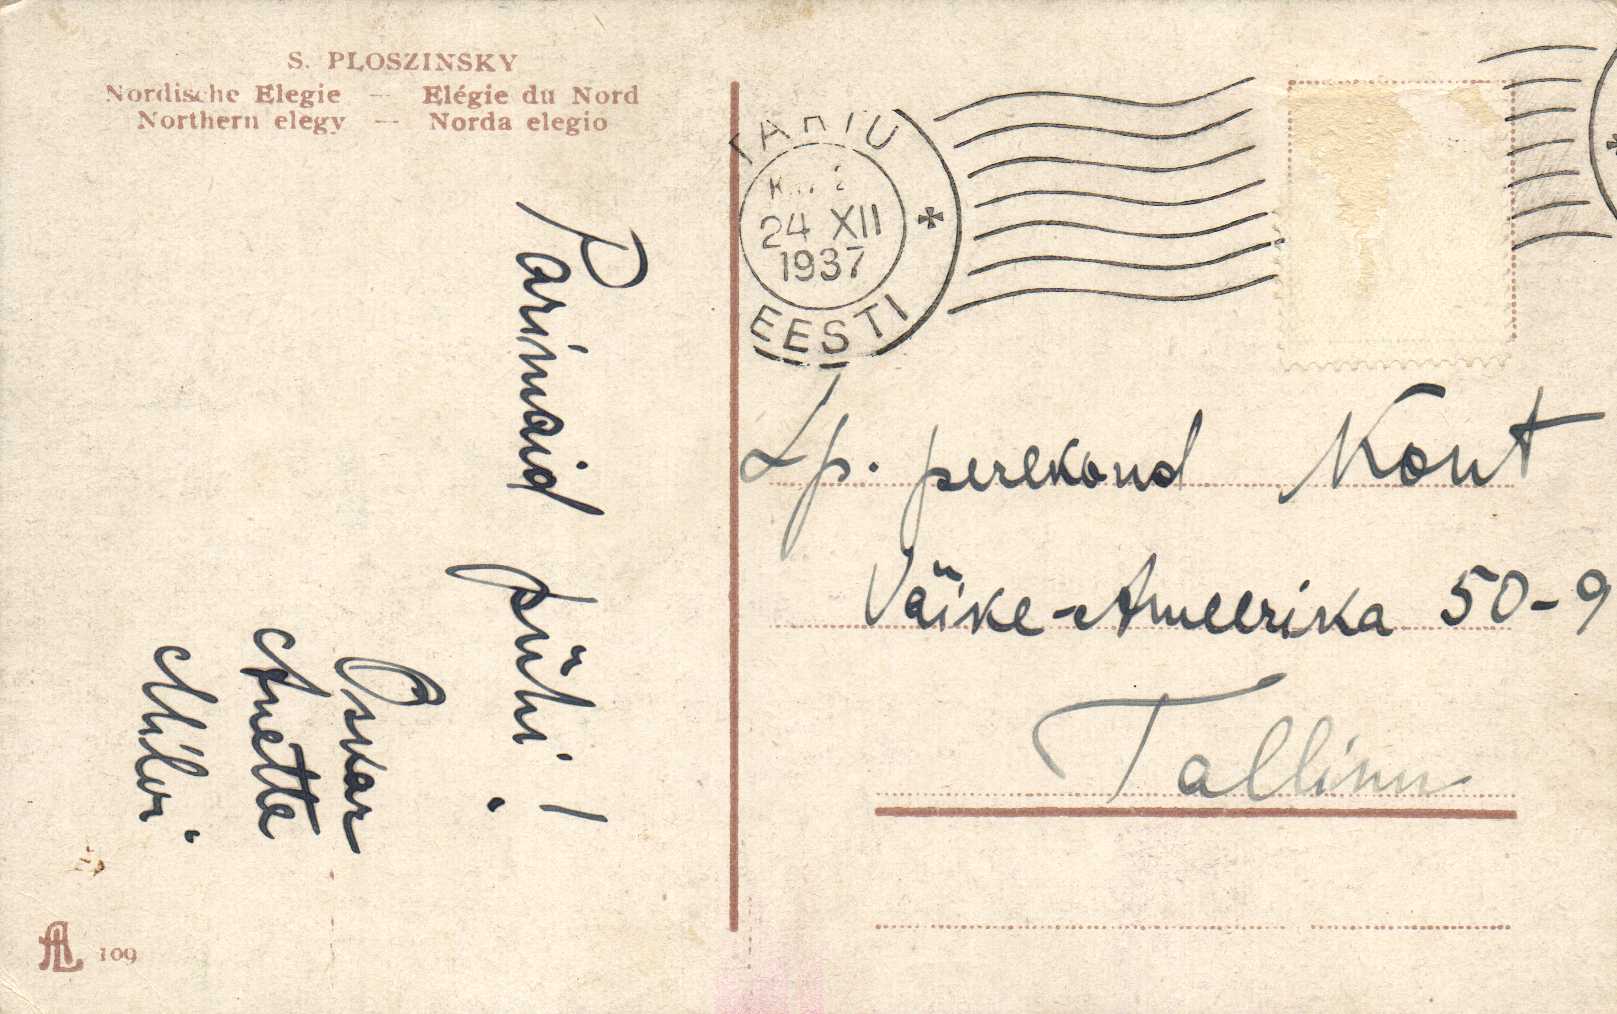 S. PLOSZINSKY
Nordische Elegie — Elégie du Nord
Northern elegy — Norda elegio
TARTU
24 XII
1937
EESTI
Parimaid pühi!
Oskar
Anetta
Milvi
Lp. perekond Kont
Väike-Ameerika 50-9
Tallinn
AL 109